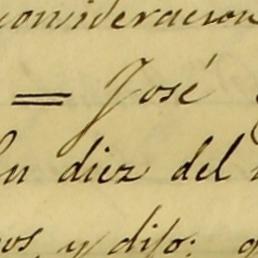 consideracion
= José
En diez del
os, y dijo: